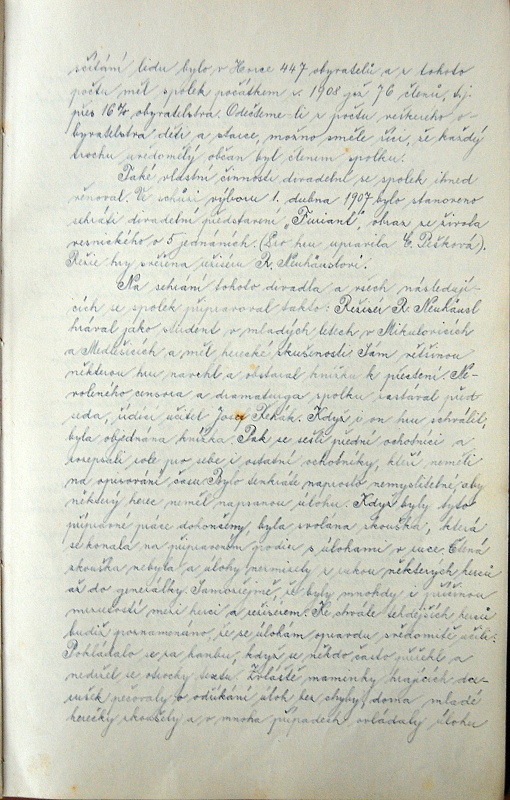 sčítání lidu bylo v Horce 447 obyvatelů a z tohoto
počtu měl spolek počátkem r. 1908 již 76 členů, t.j.
přes 16% obyvatelstva. Odečteme-li z počtu veškerého o-
byvatelstva děti a starce, možno směle říci, že každý
trochu uvědomělý občan byl členem spolku.
Také vlastní činnosti divadelní se spolek ihned
věnoval. Ve schůzi výboru 1. dubna 1907 bylo stanoveno
sehráti divadelní představení „Furiant", obraz ze života
vesnického o 5 jednáních. (Pro hru upravila G. Pešková).
Režie hry svěřena režiséru R. Neuhäuslovi.
Na sehrání tohoto divadla a všech následují-
cích se spolek připravoval takto: Režisér R. Neuhäusl
hrával jako student v mladých letech v Mikulovicích
a Medlešicích a měl herecké zkušenosti. Sám většinou
některou hru navrhl a obstaral knížku k přečtení. Ne-
voleného censora a dramaturga spolku zastával před-
seda, řídící učitel Josef Rekák. Když i on hru schválil,
byla objednána knížka. Pak se sešli přední ochotníci a
rozepsali role pro sebe i ostatní ochotníky, kteří neměli
na opisování času. Bylo tenkráte naprosto nemyslitelné, aby
některý herec neměl napsanou úlohu. Když byly tyto
přípravné práce dokončeny, byla svolána zkouška, která
se konala na připraveném podiu s úlohami v ruce. Čtená
zkouška nebyla a úlohy nezmizely z rukou některých herců
až do generálky. Samozřejmě, že byly mnohdy i příčinou
mrzutostí mezi herci a režisérem. Ke chvále tehdejších herců
budiž poznamenáno, že se úlohám opravdu svědomitě učili.
Pokládalo se za hanbu, když se někdo často přeřekl a
nedržel se textu. Zvláště maminky hrajících da-
rušek pečovaly o odříkání úloh bez chyby, doma mladé
herečky zkoušely a v mnoha případech ovládaly úlohu